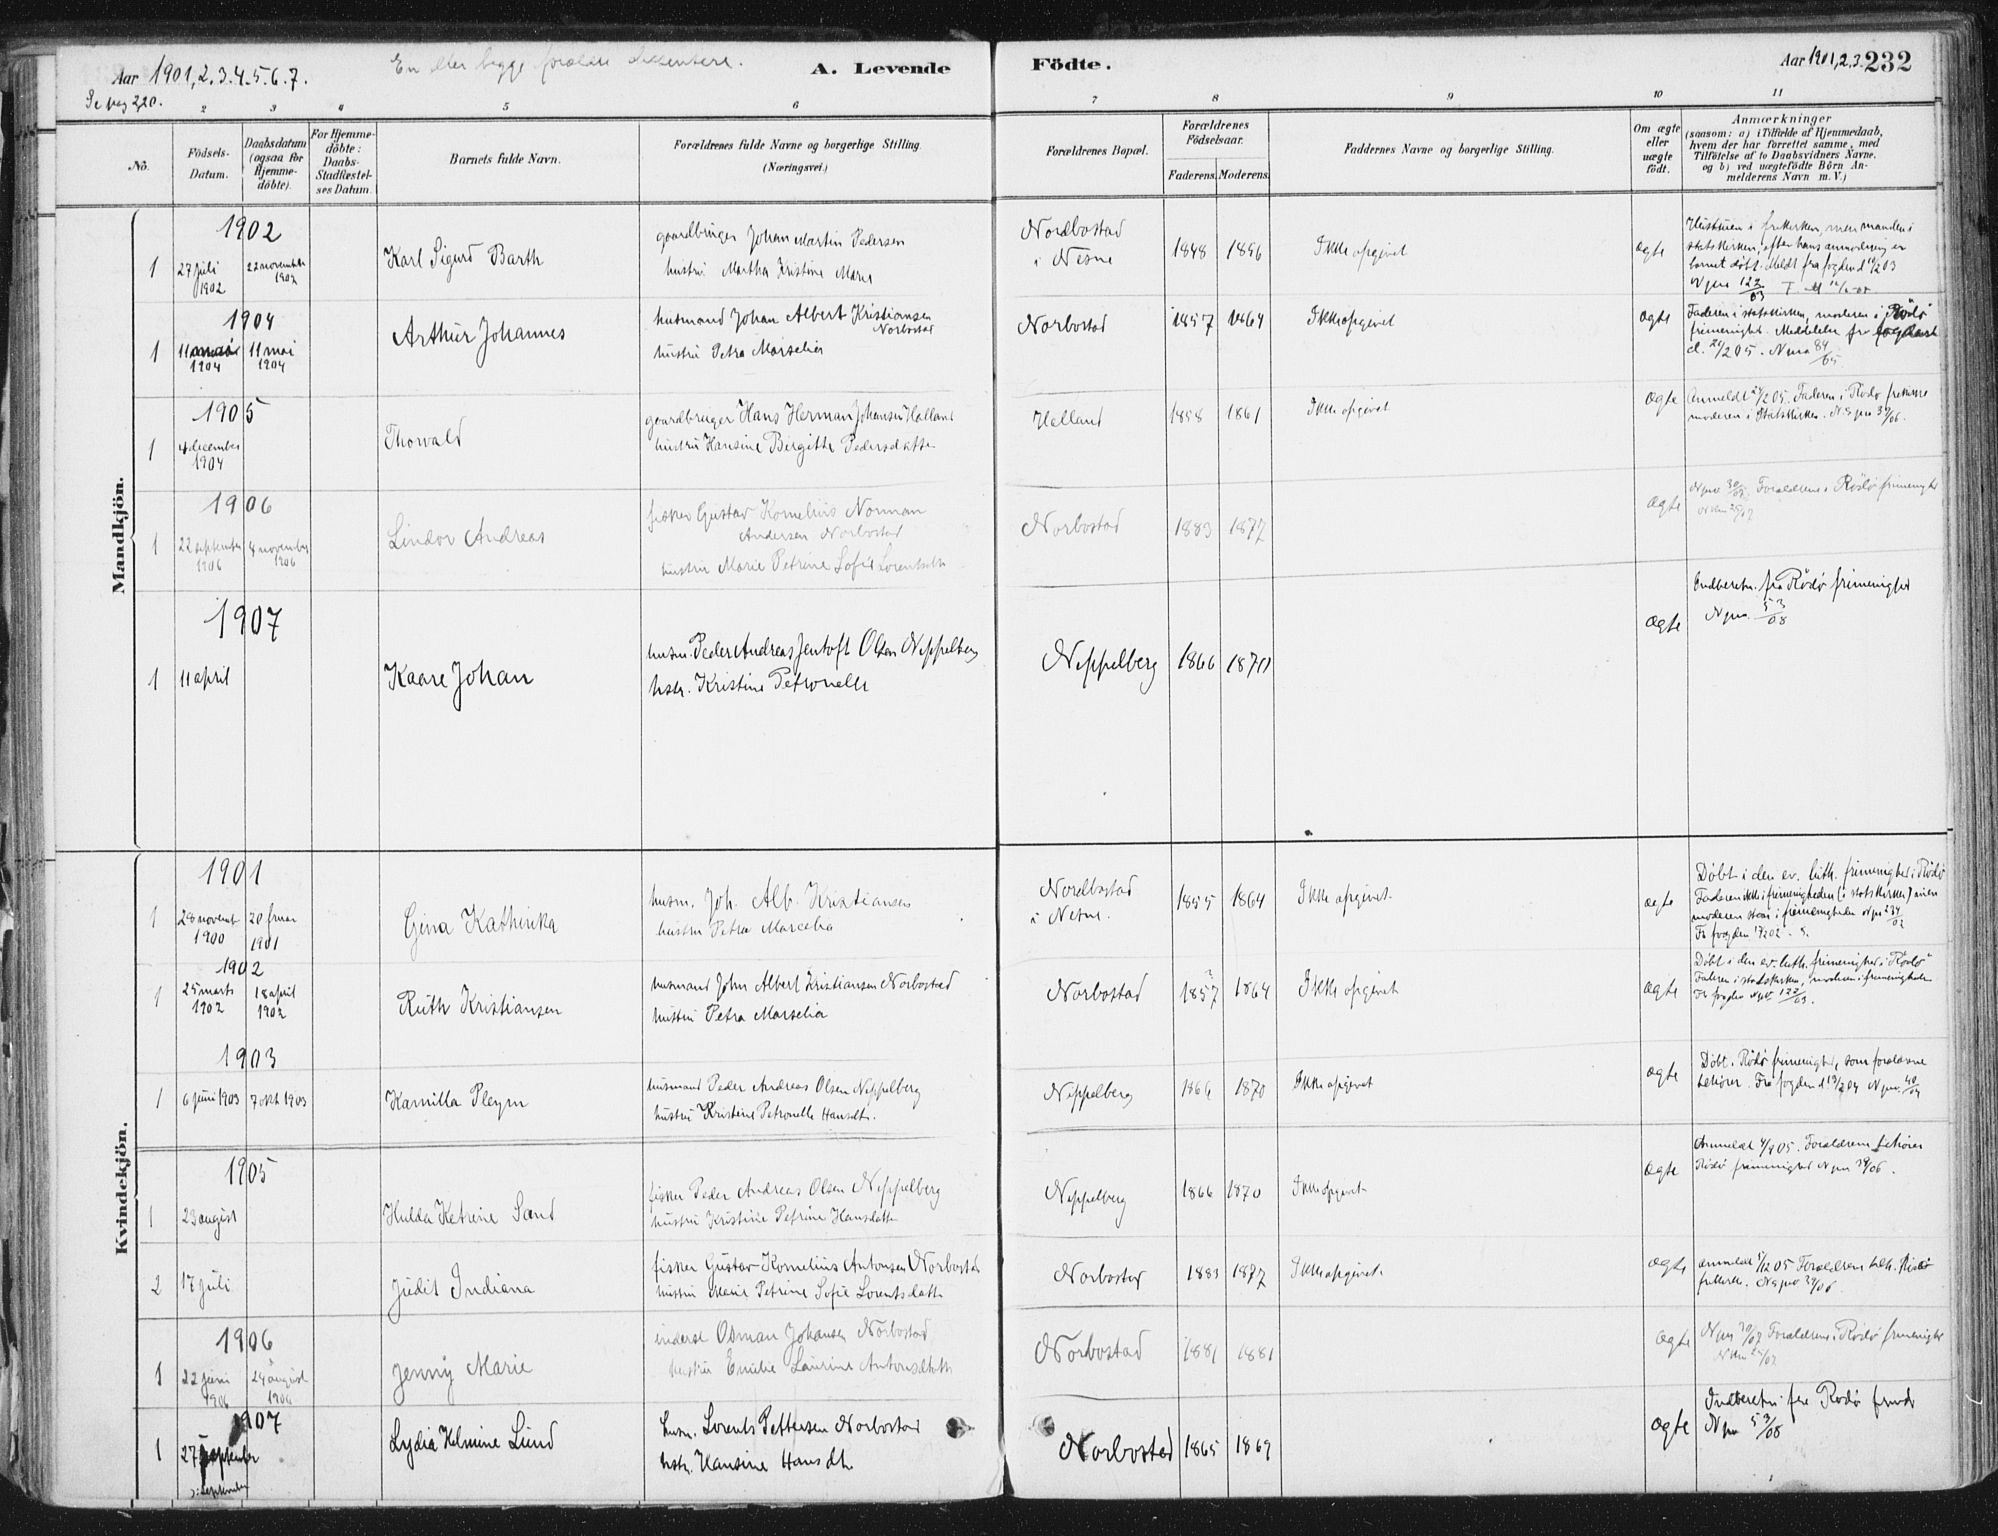 Aar 1901,2.3.4.5.6.7.
En eller begge forældre dissentere.
A. Levende
Födte.
Aar 1901,2,3.
232
Se pag 220.
2
3
4
5
6
7
8
9
10
11
No.
Födsels-
Datum.
Daabsdatum
(ogsaa for
Hjemme-
döbte).
For Hjemme-
döbte:
Daabs-
Stadfæstel-
ses Datum.
Barnets fulde Navn.
Forældrenes fulde Navne og borgerlige Stilling.
(Næringsvei.)
Forældrenes Bopæl.
Forældrenes
Födselsaar.
Faderens.
Moderens.
Faddernes Navne og borgerlige Stilling.
Om ægte
eller
uægte
födt.
Anmærkninger
(saasom: a) i Tilfælde af Hjemmedaab,
hvem der har forrettet samme, med
Tilföielse af to Daabsvidners Navne,
og b) ved uægtefödte Börn An-
melderens Navn m. V.)
Mandkjön.
1902
1
27 juli
1902
22 november
1902
Karl Sigurd Barth
gaardbruger Johan Martin Pedersen
hustru Martha Kristine Marie
Nordbostad
i Nesne
1848
1856
Ikke opgivet
ægte
Hustruen i frikirken, men manden i
statskirken, efter hans anmodning er
barnet døbt. Meldt fra fogden d
N 122/03
1904
1
11
1904
11 mai
1904
Arthur Johannes
husmand Johan Albert Kristiansen
Norbostad
hustru Petra Marselia
Norbostad
1857
1864
Ikke opgivet
ægte
Faderen i statskirken, moderen i Rödö
frimenighet. Meddelelse fra fogden
d. 205. 84/05
1905
1
4 december
1904
Thorvald
gaardbruger Hans Herman Johansen Halland
hustru Hansine Birgitte Pedersdatter
Halland
1858
1861
Ikke opgivet
ægte
Anmeldt 205. Faderen i Rödö frikirke
moderen i Statskirken.
1906
1
22 september
1906
4 november
1906
Lindor Andreas
fisker Gustav Kornelius Norman
Andersen Norbostad
hustru Marie Petrine Sofie Lorentsdtr
Norbostad
1883
1877
ægte
Forældrene i Rödö frimenighet
1907
1
11 april
Kaare Johan
husm. Peder Andreas Jentoft Olsen Neppelberg
hstr. Kristine Petronelle
Neppelberg
1866
1870
ægte
Indberetn. fra Rödö frimenighet
53/08
Kvindekjön.
1901
1
28 novemb
1900
20 
1901
Gina Kathinka
husm. Joh. Alb. Kristiansen
hustru Petra Marcelia
Nordbostad
i Nesne.
1855
1864
Ikke opgivet.
ægte
Døbt i den ev. luth. frimenighet i Rödö
Faderen ikke i frimenigheden (i statskirken) mien
moderen staar i frimenigheden 234/02
Fr fogden
1902
1
25 marts
1902
18 april
1902
Ruth Kristiansen
husmand John Albert Kristiansen Norbostad
hustru Petra Marselia
Norbostad
1857
1864
Ikke opgivet
ægte
Döbt i den ev. luth. frimenighet i Rödö
Faderen i statskirken, moderen i frimenigheden
Fr fogden 122/03.
1903
1
6 juni 1903
7 okt 1903
Kamilla Pleym
husmand Peder Andreas Olsen Neppelberg
hustru Kristine Petronelle Hansdtr.
Neppelberg
1866
1870
Ikke opgivet
ægte
Döbt i Rödö frimenighet, som forældrene
tilhører. Fra fogden d 40/04
1905
1
23 august
Hulda Katrine Sand
fisker Peder Andreas Olsen Neppelberg
hustru Kristine Petrine Hansdatter
Neppelberg
1866
1870
Ikke opgivet
ægte
Anmeldt 905. Forældrene tilhører
Rödö frimenighet
2
17 juli
Judit Indiana
fisker Gustav Kornelius Antonsen Norbostad
hustru Marie Petrine Sofie Lorentsdatter
Norbostad
1883
1877
Ikke opgivet
ægte
anmeldt 1205 Forældrene tilh. Rödö
frikirke.
1906
1
22 juni
1906
24 august
1906
Jenny Marie
inderst Osman Johansen Norbostad
hustru Emelie Laurine Antonsdatter
Norbostad
1881
1881
ægte
Forældrene i Rödö frimenighet
1907
1
27 september
ɔ: september
Lydia Helmine Lund
husm. Lorents Pettersen Norbostad
hstr. Hansine Hansdtr
Norbostad
1865
1869
ægte
Indberetn fra Rödö
53/08